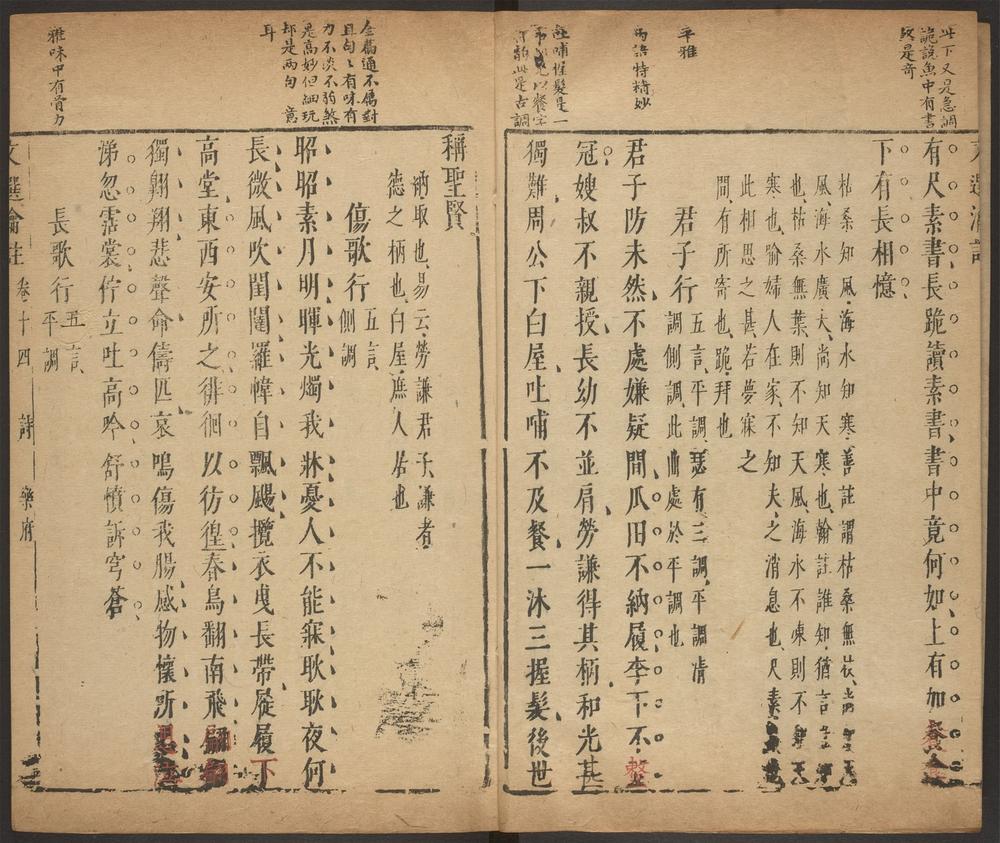 此下又是急調
詭說魚中有書
更是奇
有尺素書長跪讀素書書中竟何如上有加餐食
下有長相憶
枯桑知風海水知寒善註謂枯桑無枝尚
風海水廣大尚知天寒也翰註誰知猶言
也枯桑無葉則不知天風海水不凍則不
寒也喻婦人在家不知夫之消息也尺素
此相思之甚若夢寐之
間有所寄也跪拜也
平雅
君子行
五言平調瑟有三調平調清
調側調此曲處於平調也
為語特精妙
君子防未然不處嫌疑間瓜田不納履李下不整
冠嫂叔不親授長幼不並肩勞謙得其柄和光甚
吐哺握髮是一
獨難周公下白屋吐哺不及餐一沐三握髮後世
稱聖賢
柄取也易云勞謙君子謙者
德之柄也白屋庶人居也
傷歌行
五言
側調
全篇通不屬對
且句句有味有
力不淡不弱煞
是高妙但細玩
却是兩句意
耳
昭昭素月明暉光燭我牀憂人不能寐耿耿夜何
長微風吹閨闥羅幃自飄颺攬衣曳長帶屣履下
高堂東西安所之徘徊以彷徨春鳥翻南飛翩翩
獨翱翔悲聲命儔匹哀鳴傷我腸感物懷所思泣
涕忽霑裳佇立吐高吟舒憤訴穹蒼
雅味中有骨力
長歌行
五言
平調
文選瀹註 卷十四 詩 樂府